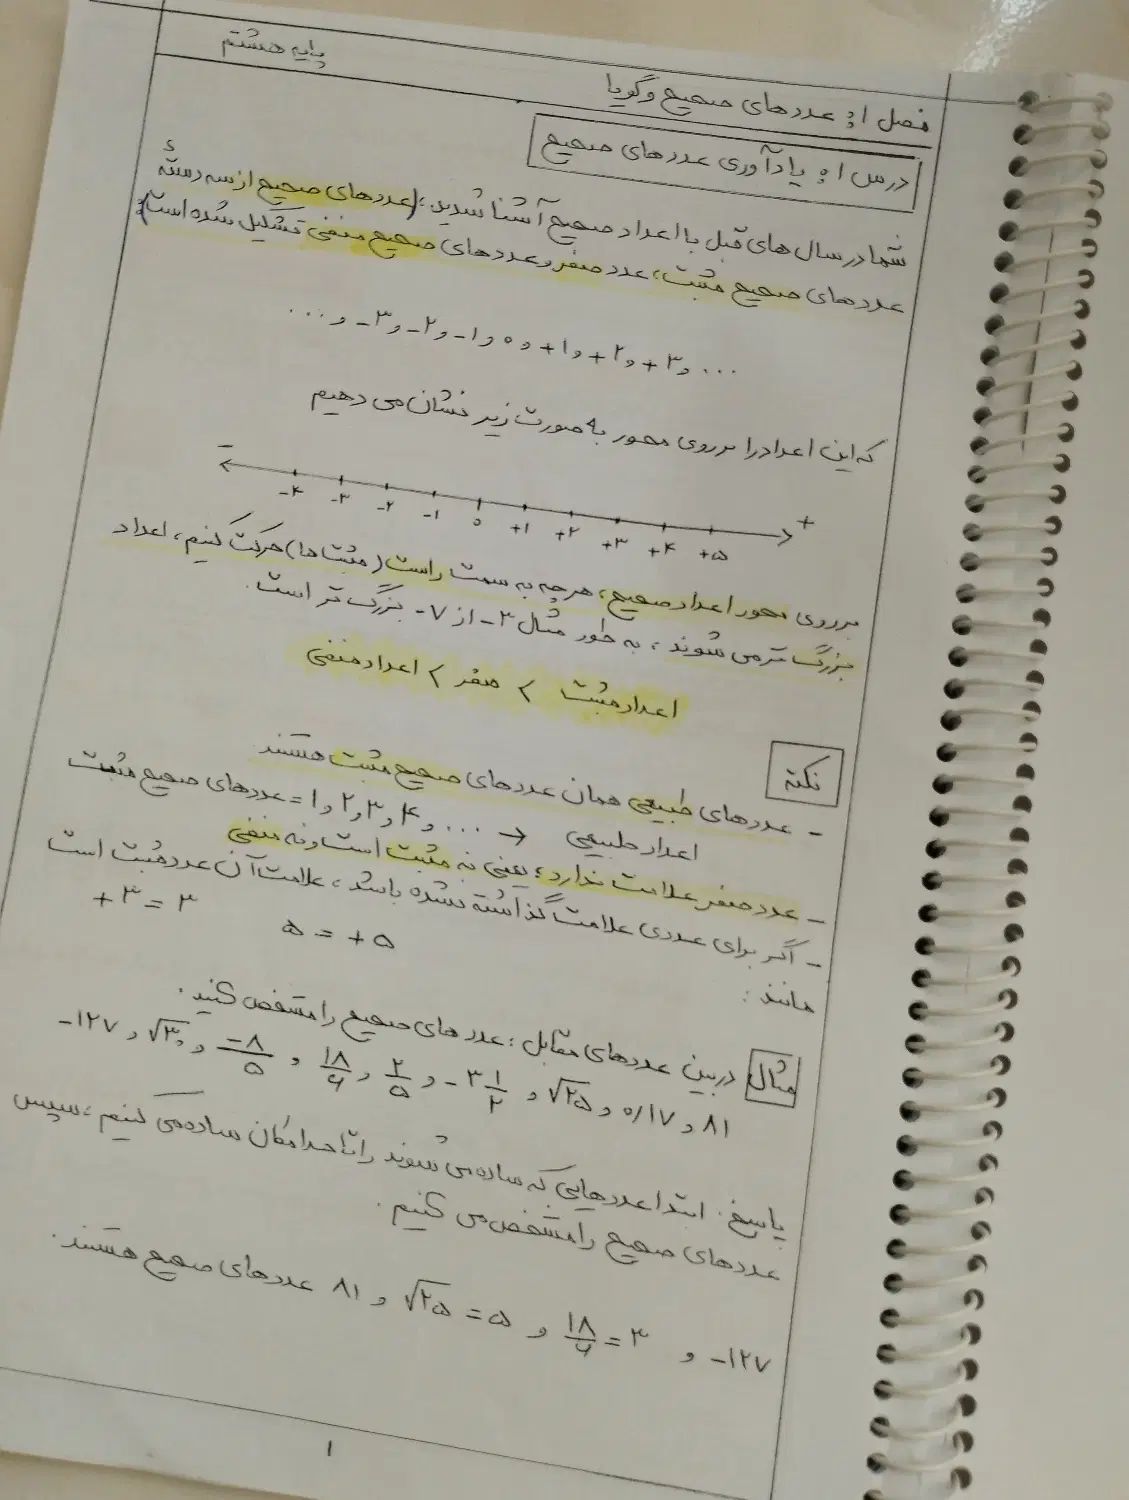 پایه هشتم
فصل ۱: عددهای صحیح و گویا
درس ۱: یادآوری عددهای صحیح
شما در سال های قبل با اعداد صحیح آشنا شدید، (عددهای صحیح از سه دستهٔ
عددهای صحیح مثبت، عدد صفر و عددهای صحیح منفی تشکیل شده است):
... و -۳ و -۲ و -۱ و ۰ و +۱ و +۲ و +۳ و ...
که این اعداد را بر روی محور به صورت زیر نشان می دهیم
- +
-۴ -۳ -۲ -۱ ۰ +۱ +۲ +۳ +۴ +۵
بر روی محور اعداد صحیح، هر چه به سمت راست (مثبت ها) حرکت کنیم، اعداد
بزرگ تر می شوند، به طور مثال -۲ از -۷ بزرگ تر است.
اعداد مثبت > صفر > اعداد منفی
نکته
- عددهای طبیعی همان عددهای صحیح مثبت هستند.
اعداد طبیعی → ... و ۴ و ۳ و ۲ و ۱ = عددهای صحیح مثبت
- عدد صفر علامت ندارد؛ یعنی نه مثبت است و نه منفی
- اگر برای عددی علامت گذاشته نشده باشد، علامت آن عدد مثبت است
مانند: ۵ = +۵ +۳ = ۳
مثال در بین عددهای مقابل: عددهای صحیح را مشخص کنید.
۸۱ و ۰/۱۷ و √۲۵ و -۳ ۱/۲ و ۲/۵ و ۱۸/۶ و -۸/۵ و √۳۰ و -۱۲۷
پاسخ. ابتدا عددهایی که ساده می شوند را تا حد امکان ساده می کنیم، سپس
عددهای صحیح را مشخص می کنیم.
-۱۲۷ و ۱۸/۶ = ۳ و √۲۵ = ۵ و ۸۱ عددهای صحیح هستند.
۱